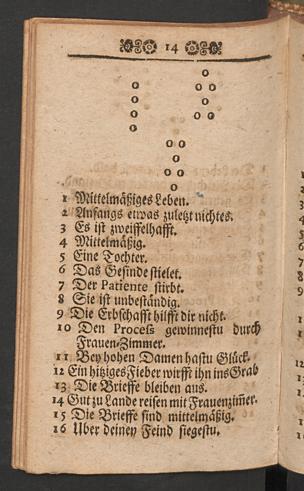 14
1 Mittelmäßiges Leben.
2 Anfangs etwas zuletzt nichtes.
3 Es ist zweiffelhafft.
4 Mittelmäßig.
5 Eine Tochter.
6 Das Gesinde stielet.
7 Der Patiente stirbt.
8 Sie ist unbeständig.
9 Die Erbschafft hilfft dir nicht.
10 Den Proceß gewinnestu durch
Frauen-Zimmer.
11 Bey hohen Damen hastu Glück.
12 Ein hitziges Fieber wirfft ihn ins Grab
13 Die Brieffe bleiben aus.
14 Gut zu Lande reisen mit Frauenzim̃er.
15 Die Brieffe sind mittelmäßig.
16 Uber deinen Feind siegestu.